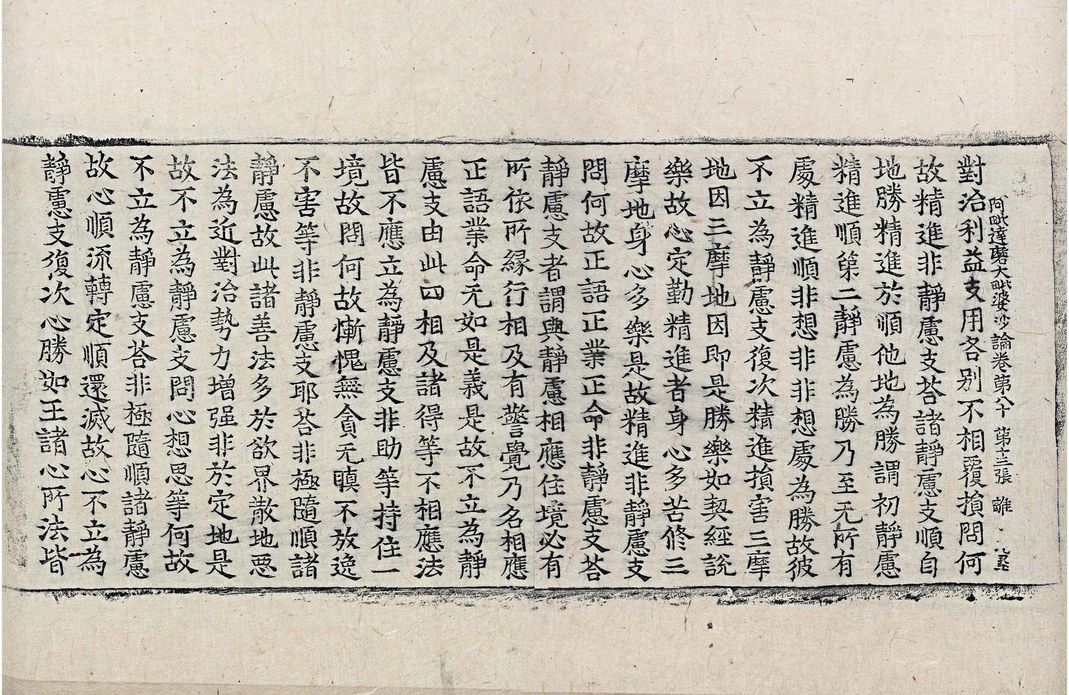 阿毗達磨大毗婆沙論卷第八十 第十三張 離
對治利益支用各別不相覆損問何
故精進非靜慮支荅諸靜慮支順自
地勝精進於順他地為勝謂初靜慮
精進順第二靜慮為勝乃至无所有
處精進順非想非非想處為勝故彼
不立為靜慮支復次精進損害三摩
地因三摩地因即是勝樂如契經說
樂故心定勤精進者身心多苦修三
摩地身心多樂是故精進非靜慮支
問何故正語正業正命非靜慮支荅
靜慮支者謂與靜慮相應住境必有
所依所緣行相及有警覺乃名相應
正語業命无如是義是故不立為靜
慮支由此四相及諸得等不相應法
皆不應立為靜慮支非助等持住一
境故問何故慚愧無貪无瞋不放逸
不害等非靜慮支耶荅非極隨順諸
靜慮故此諸善法多於欲界散地惡
法為近對治勢力增强非於定地是
故不立為靜慮支問心想思等何故
不立為靜慮支荅非極隨順諸靜慮
故心順流轉定順還滅故心不立為
靜慮支復次心勝如王諸心所法皆